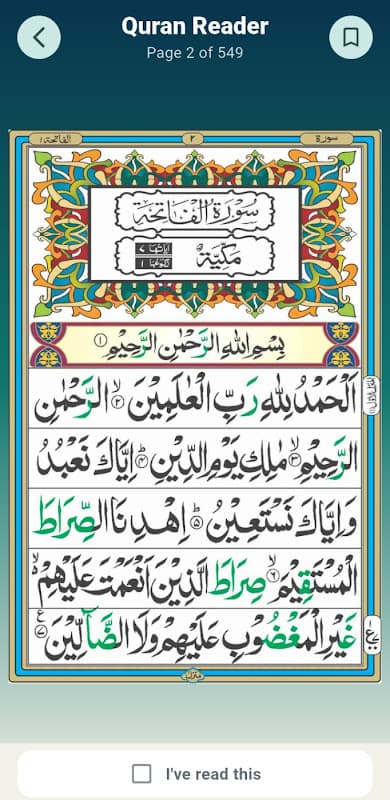 Quran Reader
Page 2 of 549
سورة
٢
الفاتحة ١
سُوْرَةُ الْفَاتِحَةِ
مَكِّيَّةٌ
اٰيَاتُهَا ٧
رُكُوْعُهَا ١
بِسْمِ اللّٰهِ الرَّحْمٰنِ الرَّحِيْمِ ①
اَلْحَمْدُ لِلّٰهِ رَبِّ الْعٰلَمِيْنَ ۙ② الرَّحْمٰنِ
الرَّحِيْمِ ۙ③ مٰلِكِ يَوْمِ الدِّيْنِ ؕ④ اِيَّاكَ نَعْبُدُ
وَاِيَّاكَ نَسْتَعِيْنُ ؕ⑤ اِهْدِنَا الصِّرَاطَ
الْمُسْتَقِيْمَ ۙ⑥ صِرَاطَ الَّذِيْنَ اَنْعَمْتَ عَلَيْهِمْ ۙ
غَيْرِ الْمَغْضُوْبِ عَلَيْهِمْ وَلَا الضَّآلِّيْنَ ⑦
منزل
I've read this